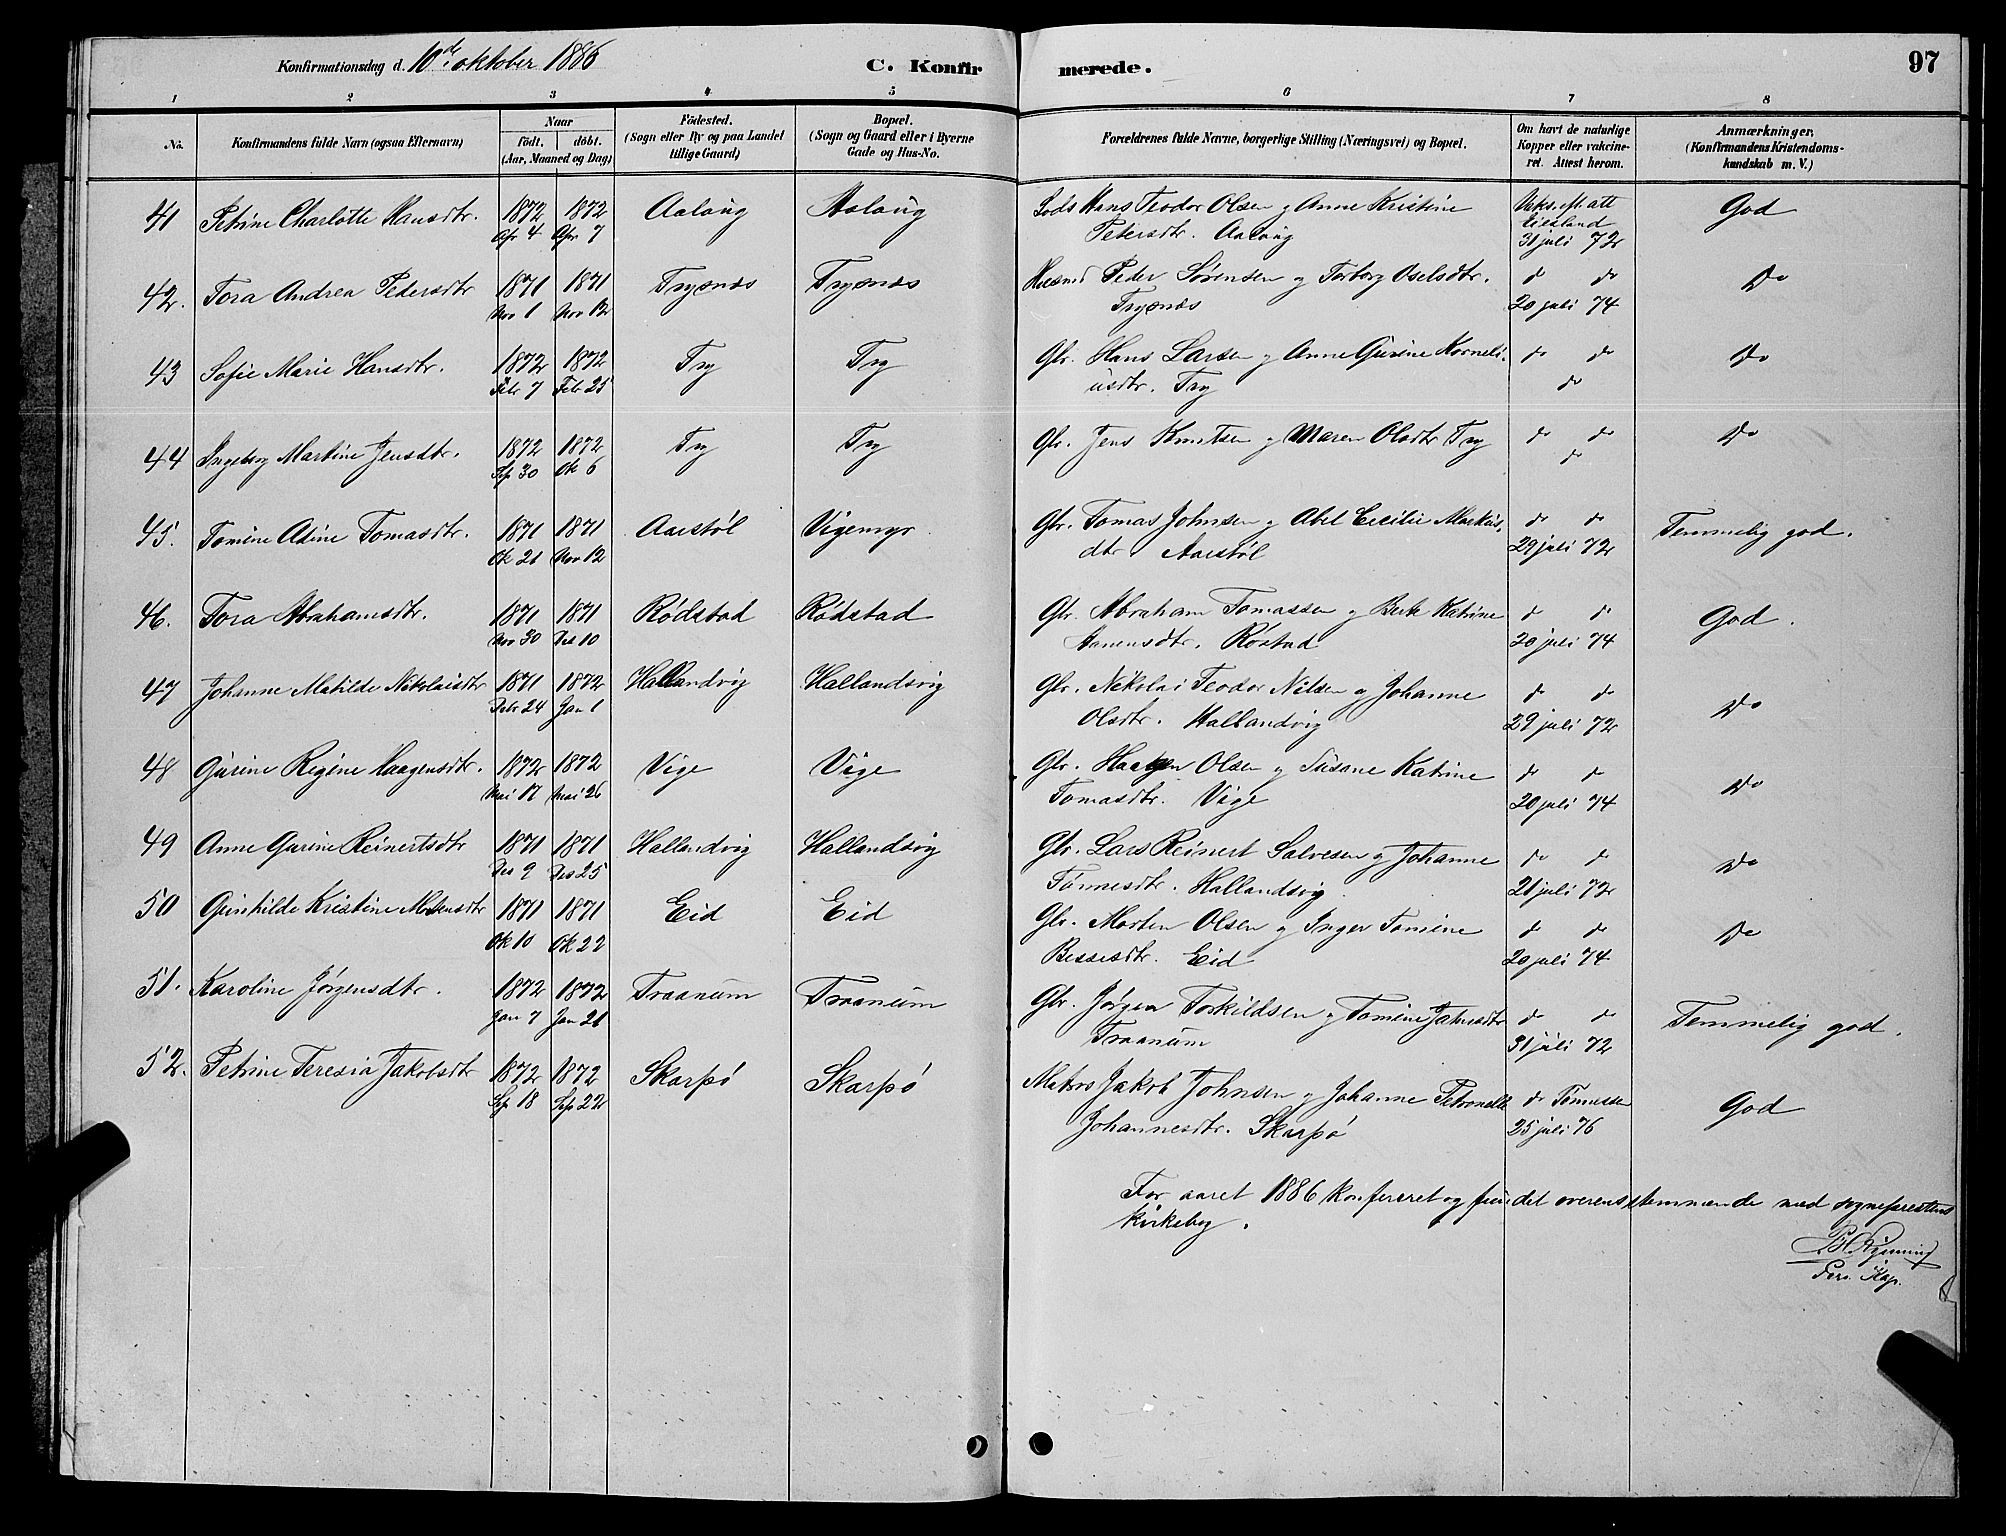 Konfirmationsdag d. 10de oktober 1886
C. Konfirmerede.
97
1 2 3 4 5 6 7 8
No.
Konfirmandens fulde Navn (ogsaa Efternavn)
Naar
født. døbt.
(Aar, Maaned og Dag)
Fødested.
(Sogn eller By og paa Landet
tillige Gaard)
Bopæl.
(Sogn og Gaard eller i Byerne
Gade og Hus-No.
Forældrenes fulde Navne, borgerlige Stilling (Næringsvei) og Bopæl.
Om havt de naturlige
Kopper eller vakcine-
ret. Attest herom.
Anmærkninger.
(Konfirmandens Kristendoms-
kundskab m. V.)
41 Petrine Charlotte Hansdtr. 1872 1872 Aalaug Aalaug Lods Hans Teodor Olsen og Anne Kristine Vaks. M att God
Apr 4 Apr 7 Petersdtr. Aalaug Eiesland
31 juli 72
42. Tora Andrea Pedersdtr 1871 1871 Trysnes Trysnes Husmd Peder Sørensen og Torborg Oselsdtr. do do Do
Nov 1 Nov 12 Trysnes 20 juli 74
43 Sofie Marie Hansdtr. 1872 1872 Try Try Gbr. Hans Larsen og Anne Gurine Korneli- do do Do
Febr 7 Febr 25 usdtr. Try do
44 Ingeborg Martine Jensdtr. 1872 1872 Try Try Gbr. Jens Knutsen og Maren Olsdtr Try do do Do
Sep 30 Ok 6 do
45. Tomine Adine Tomasdtr. 1871 1871 Aarstøl Vigemyr Gbr. Tomas Johnsen og Abel Cecilie Markus- do do Temmelig god.
Ok 21 Nov 12 dtr Aarstøl 29 juli 72
46. Tora Abrahamsdtr. 1871 1871 Rødstad Rødstad Gbr. Abraham Tomassen og Berte Katrine do do God.
Nov 30 Des 10 Aanensdtr. Røstad 20 juli 74
47 Johanne Matilde Nikolaisdtr 1871 1872 Hallandvig Hallandsvig Gbr. Nikolai Teodor Nilsen og Johanne do do Do
Febr 24 Jan 1 Olsdtr. Hallandvig 29 juli 72
48 Gurine Regine Haagensdtr. 1872 1872 Vige Vige Gbr. Haagen Olsen og Susane Katrine do do Do
Mai 17 Mai 26 Tomasdtr. Vige 20 juli 74
49 Anne Gurine Reinertsdtr 1871 1871 Hallandvig Hallandsvig Gbr. Lars Reinert Salvesen og Johanne do do Do
Des 9 Des 25 Tønnesdtr. Hallandsvig. 21 juli 72
50 Gunhilde Kristine Motensdtr 1871 1871 Eid Eid Gbr. Morten Olsen og Inger Tomine do do Do
Ok 10 Ok 22 Bessesdtr. Eid 20 juli 74
51. Karoline Jørgensdtr. 1872 1872 Traanum Traanum Gbr. Jørgen Torkildsen og Tomine Jahnsdtr do do Temmelig god.
Jan 7 Jan 21 Traanum 31 juli 72
52. Petrine Teresia Jakobsdtr 1872 1872 Skarpø Skarpø Matros Jakob Johnsen og Johanne Petronelle do Tønnessen God
Sep 18 Sep 22 Johannesdtr. Skarpø 25 juli 76
For aaret 1886 konfereret og fundet overensstemmende med sogneprestens
kirkebog.
Pers. Kap.